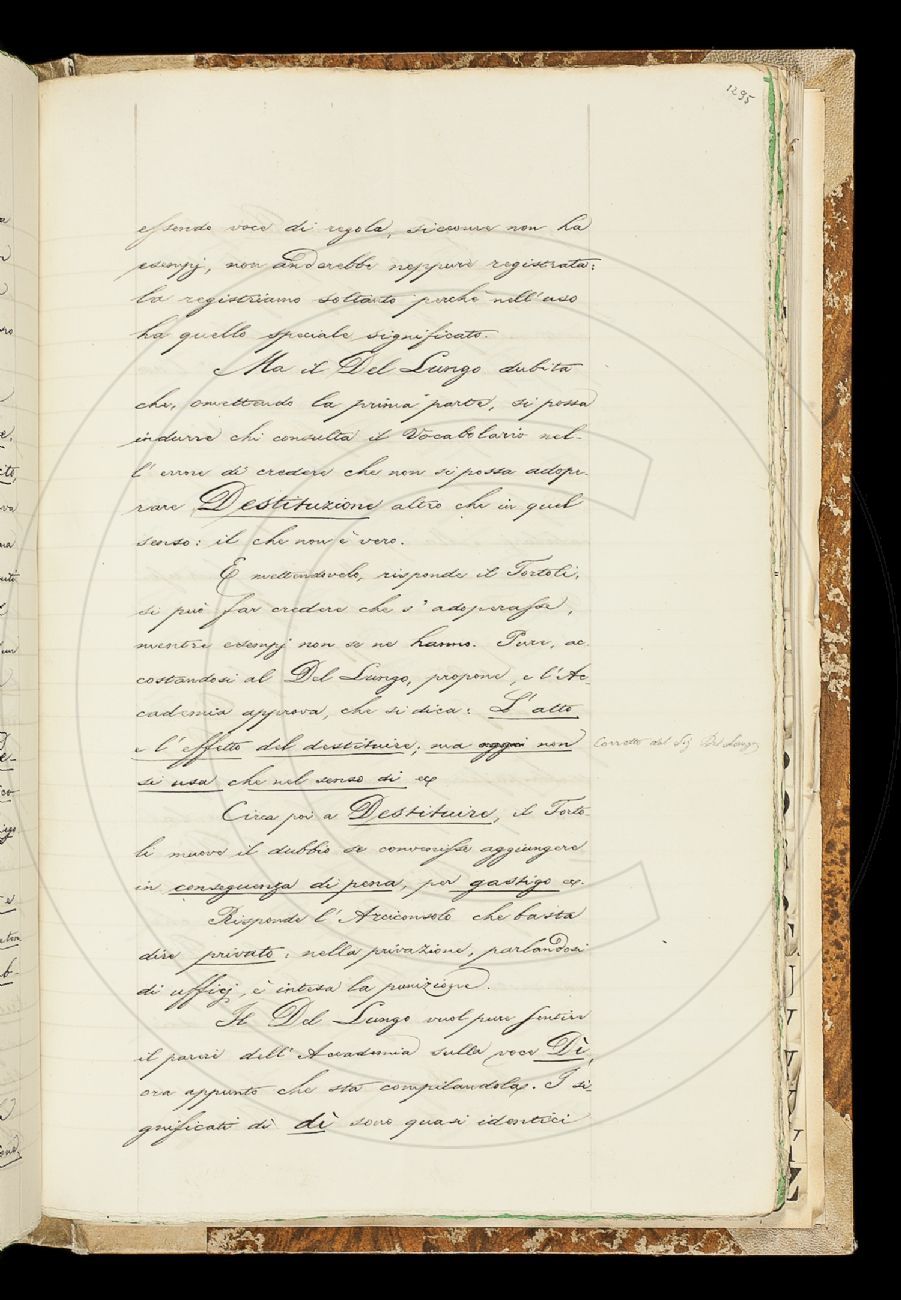 1295
essendo voce di regola, siccome non ha
esempj, non anderebbe neppure registrata:
la registriamo soltanto perchè nell'uso
ha quello speciale significato.
Ma il Del Lungo dubita
che, omettendo la prima parte, si possa
indurre chi consulta il Vocabolario nel-
l'errore di credere che non si possa adope-
rare Destituzione altro che in quel
senso: il che non è vero.
E mettendovelo, risponde il Tortoli,
si può far credere che s'adoperasse,
mentre esempj non se ne hanno. Pure, ac-
costandosi al Del Lungo, propone, e l'Ac-
cademia approva, che si dica: L'atto
e l'effetto del destituire; ma oggi non
Corretto dal Sig Del Lungo
si usa che nel senso di ec
Circa poi a Destituire, il Torto-
li muove il dubbio se convenisse aggiungere
in conseguenza di pena, per gastigo ec.
Risponde l'Arciconsolo che basta
dire privato: nella privazione, parlandosi
di ufficj, è intesa la punizione.
Il Del Lungo vuol pure sentire
il parere dell'Accademia sulla voce Dì,
ora appunto che sta compilandola. I si-
gnificati di dì sono quasi identici